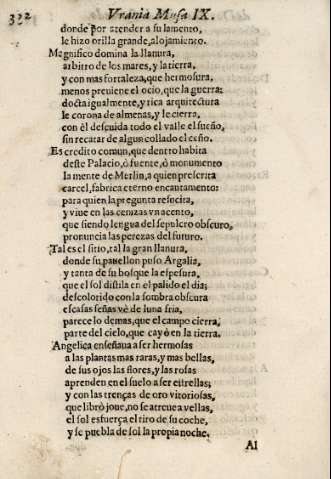 332 Vrania Musa IX.
donde por atender a su lamento,
le hizo orilla grande, alojamiento.
Magnifico domina la llanura,
arbitro de los mares, y la tierra,
y con mas fortaleza, que hermosura,
menos previene el ocio, que la guerra:
docta igualmente, y rica arquitectura
le corona de almenas, y le cierra,
con èl descuida todo el valle el sueño,
sin recatar de algun collado el ceño.
Es credito comun, que dentro habita
deste Palacio, ò fuente, ò monumento
la mente de Merlin, a quien prescrita
carcel, fabrica eterno encantamento:
para quien la pregunta resucita,
y viue en las cenizas vn acento,
que siendo lengua del sepulcro obscuro,
pronuncia las perezas del futuro.
Tal es el sitio, tal la gran llanura,
donde su pauellon puso Argalia,
y tanta de su bosque la espesura,
que el sol distila en el palido el dia;
descolorido con la sombra obscura
escasas señas vè de luna fria,
parece lo demas, que el campo cierra,
parte del cielo, que cayò en la tierra.
Angelica enseñaua a ser hermosas
a las plantas mas raras, y mas bellas,
de sus ojos las flores, y las rosas
aprenden en el suelo a ser estrellas;
y con las trenças de oro vitoriosas,
que librò joue, no se atreue a vellas,
el sol esfuerça el tiro de su coche,
y se puebla de sol la propia noche.
Al